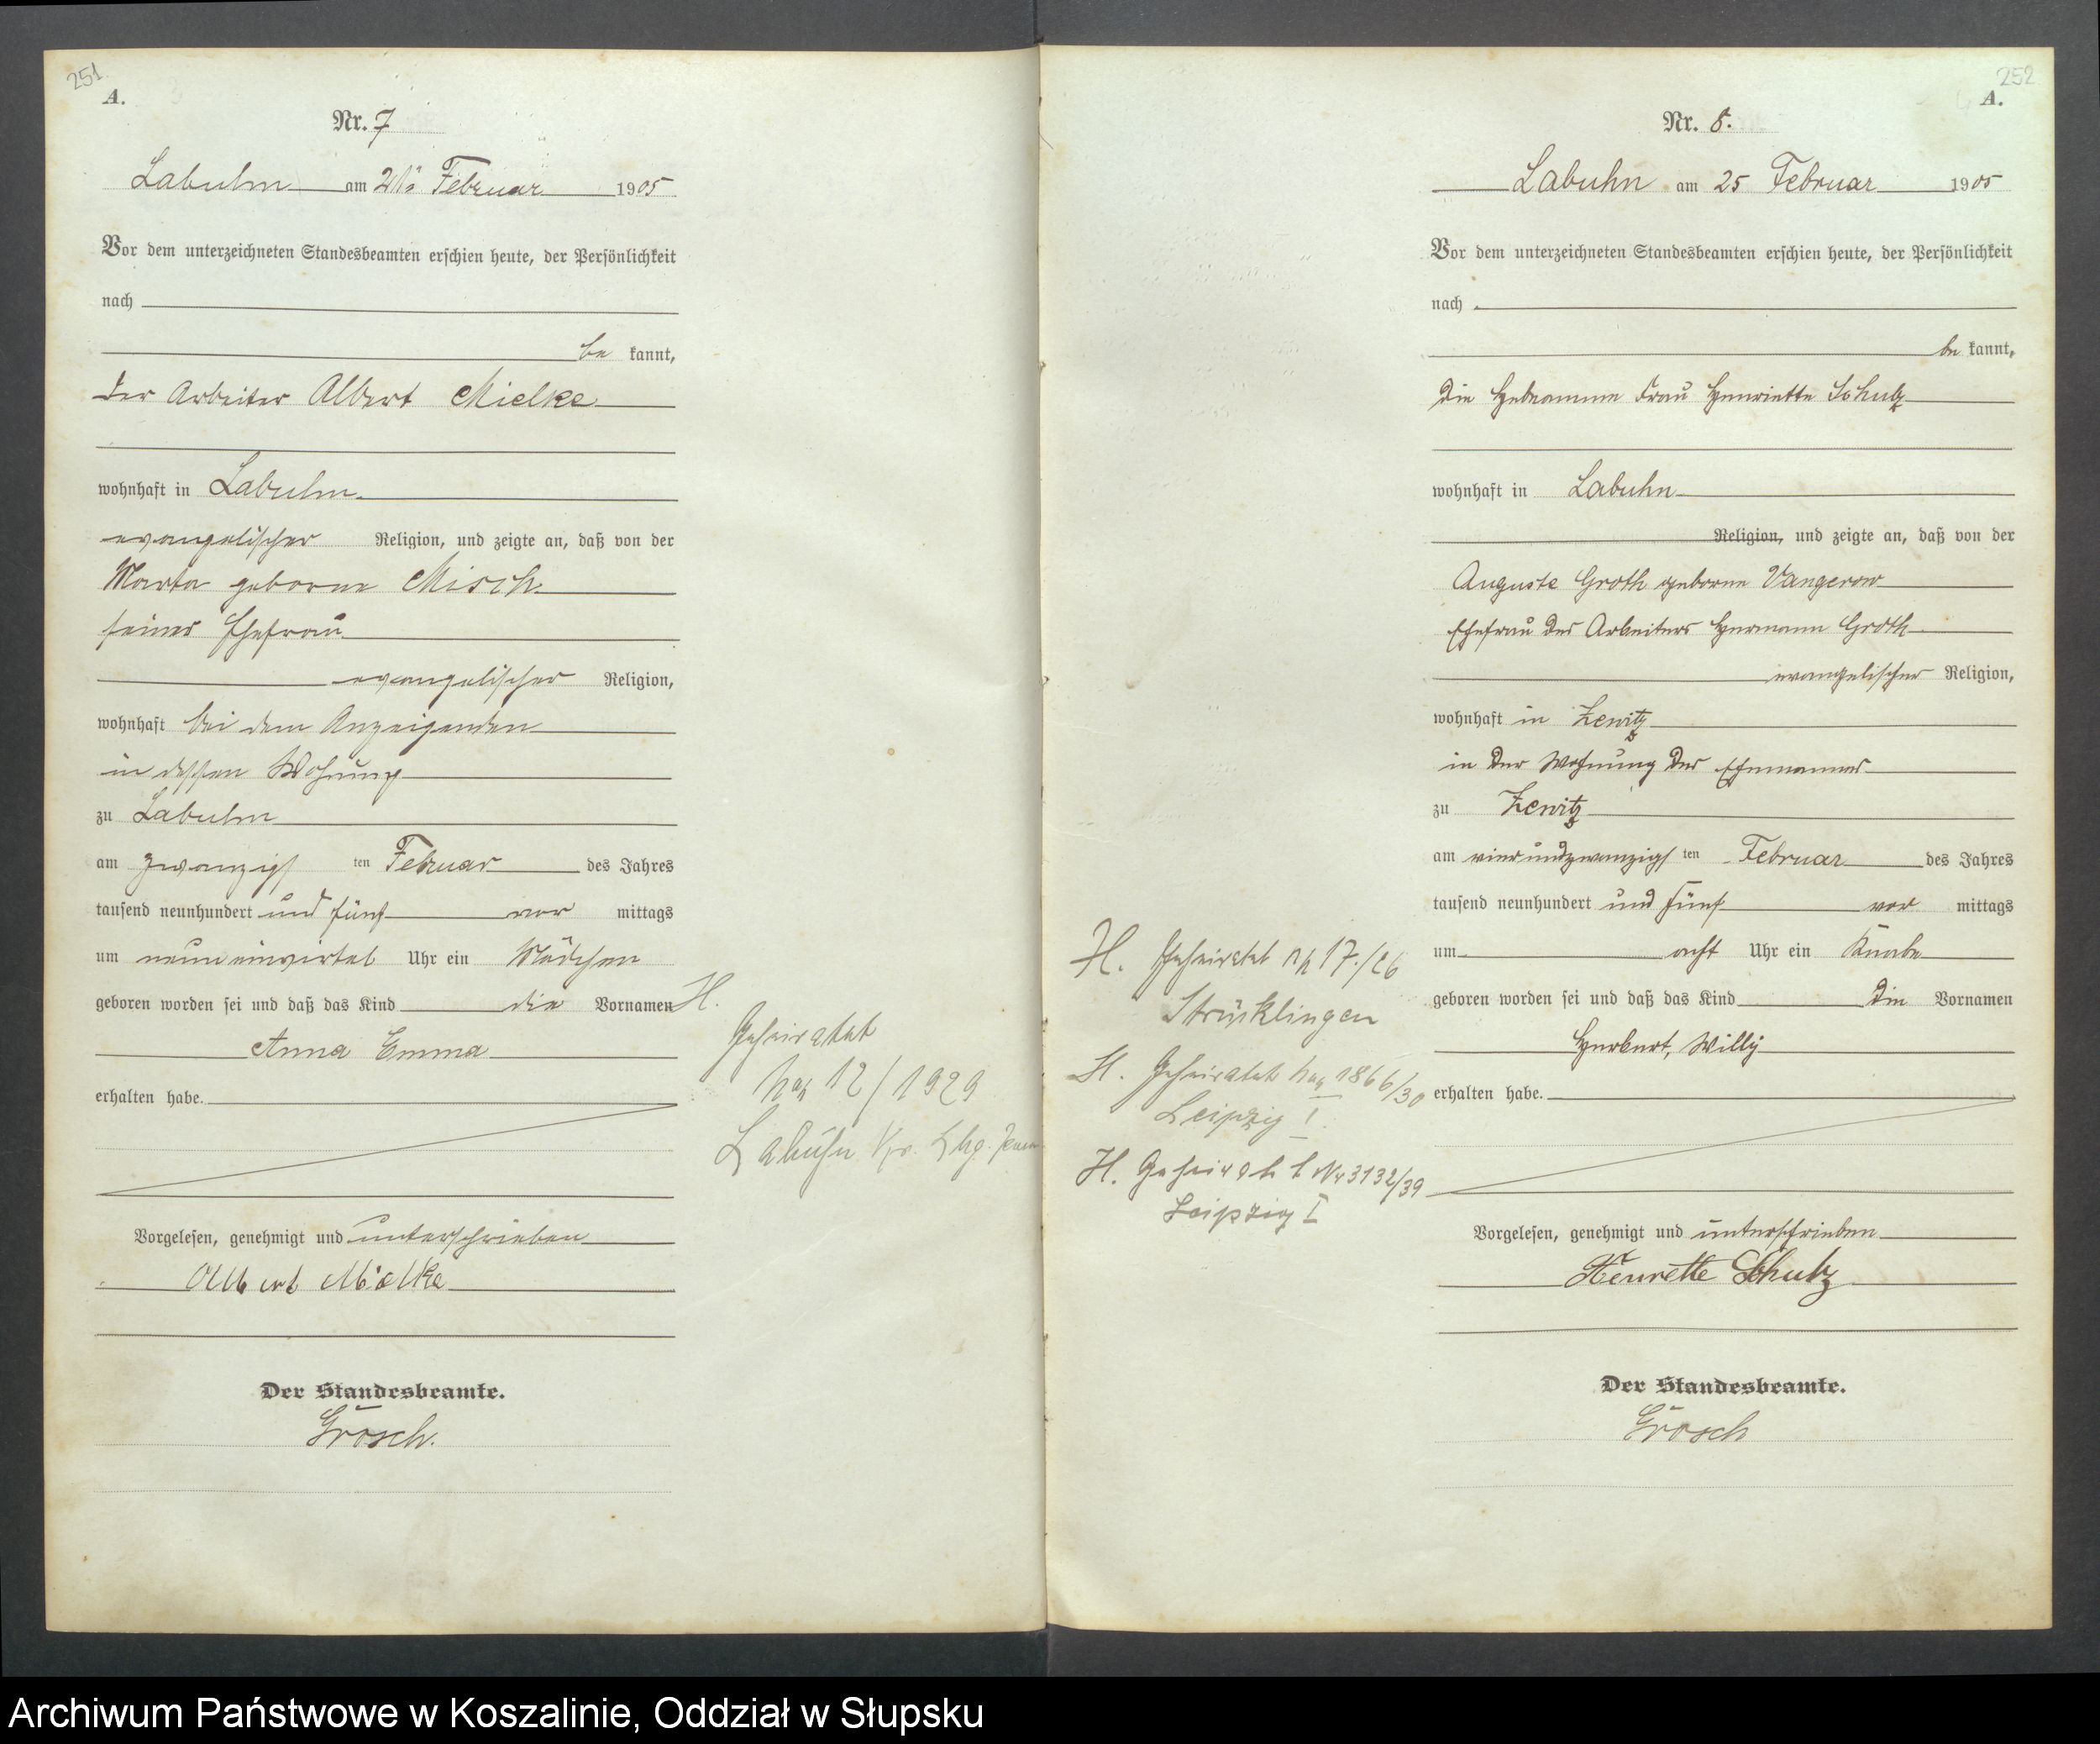 251
A.
Nr. 7
Labuhn am Februar 1905
Vor dem unterzeichneten Standesbeamten erschien heute, der Persönlichkeit
nach
be kannt,
der Arbeiter Albert Mielke
wohnhaft in Labuhn
evangelischer Religion, und zeigte an, daß von der
geborne Misch
seiner Ehefrau
evangelischer Religion,
wohnhaft bei dem Anzeigenden
in dessen Wohnung
zu Labuhn
am zwanzigs ten Februar des Jahres
tausend neunhundert und fünf vor mittags
um neuneinviertel Uhr ein Mädchen
geboren worden sei und daß das Kind die Vornamen
Anna Emma
erhalten habe.
Vorgelesen, genehmigt und unterschrieben
Albert Mielke
Der Standesbeamte.
Grosch.
H.
Geheiratet
12/1929
Labuhn
252
A.
Nr. 8.
Labuhn am 25 Februar 1905
Vor dem unterzeichneten Standesbeamten erschien heute, der Persönlichkeit
nach
be kannt,
die Hebamme Frau Henriette Schulz
wohnhaft in Labuhn
Religion, und zeigte an, daß von der
Auguste Groth geborne Vangerow
Ehefrau des Arbeiters Hermann Groth
evangelischer Religion,
wohnhaft in Zewitz
in der Wohnung des Ehemannes
zu Zewitz
am vierundzwanzigs ten Februar des Jahres
tausend neunhundert und fünf vor mittags
um acht Uhr ein Knabe
geboren worden sei und daß das Kind die Vornamen
Herbert, Willy
erhalten habe.
Vorgelesen, genehmigt und unterschrieben
Henriette Schulz
Der Standesbeamte.
Grosch
H. Geheiratet 17./26
Strücklingen
H. Geheiratet 1866/30
Leipzig I.
H. Geheiratet Nr 3132/39
Leipzig I
Archiwum Państwowe w Koszalinie, Oddział w Słupsku